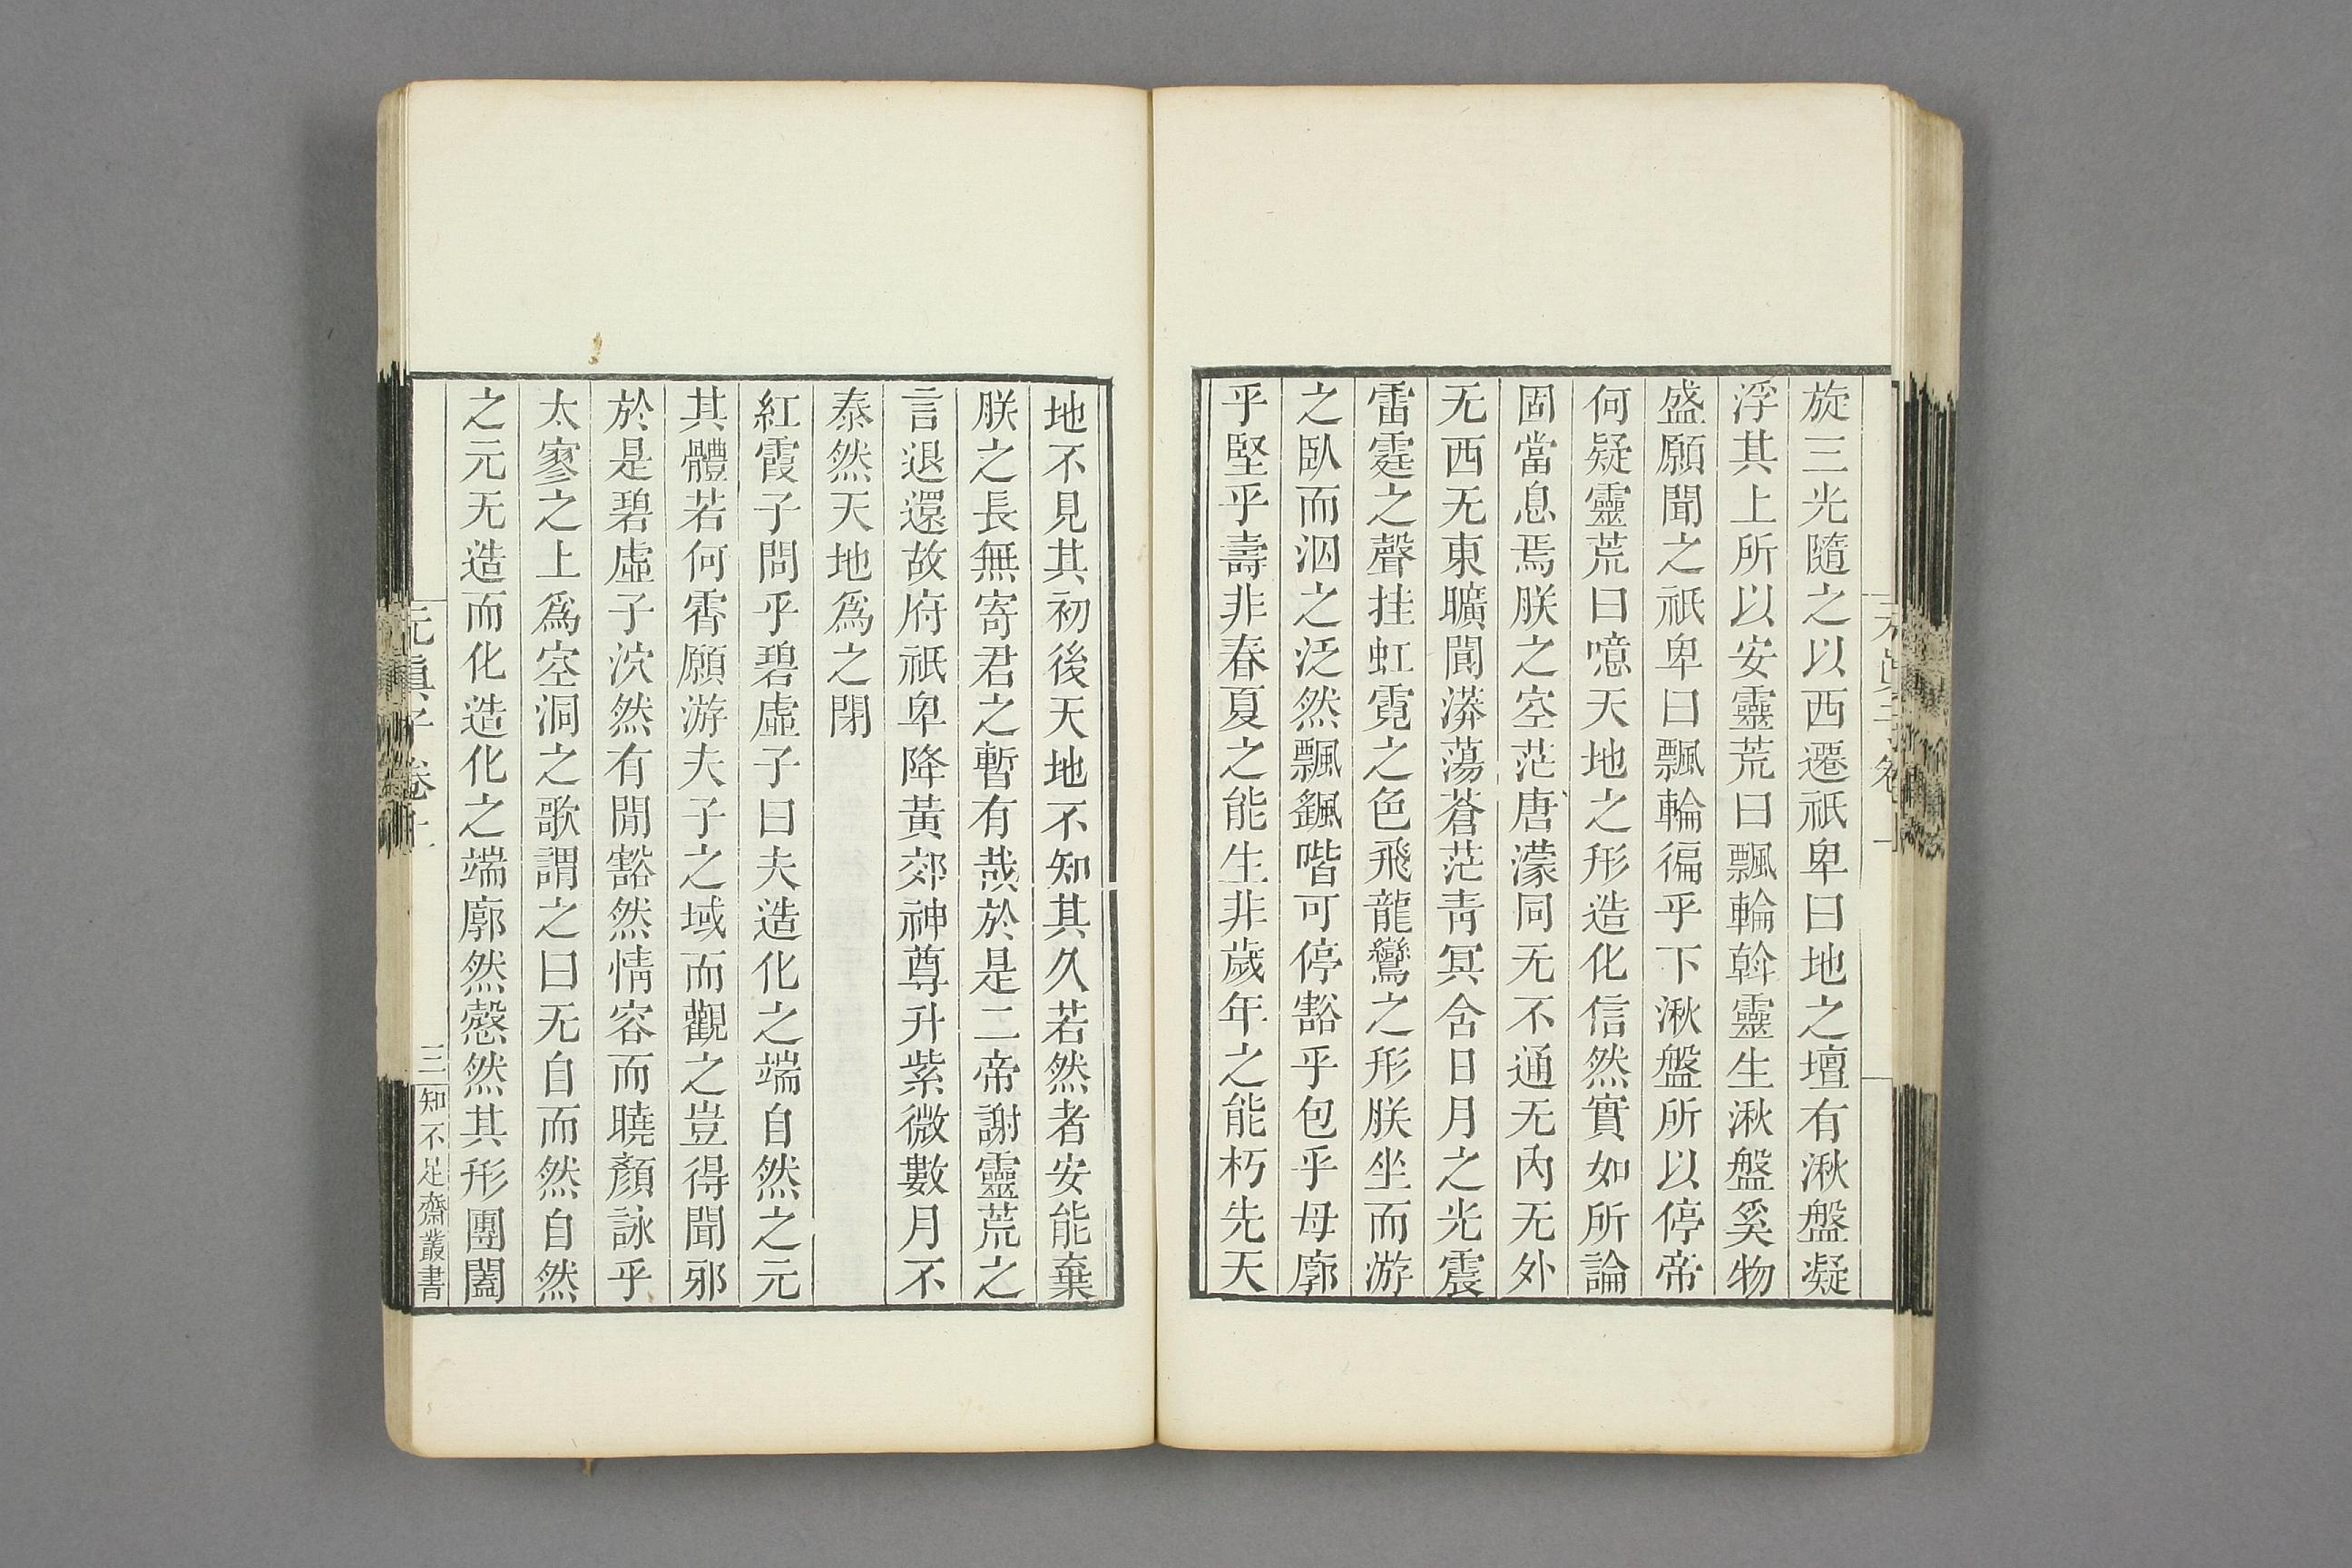 旋三光隨之以西遷祇卑曰地之壇有湫盤凝
浮其上所以安靈荒曰飄輪斡靈生湫盤奚物
盛願聞之祇卑曰飄輪徧乎下湫盤所以停帝
何疑靈荒曰噫天地之形造化信然實如所論
固當息焉朕之空茫唐濛同无不通无內无外
无西无東曠閬漭蕩蒼茫青冥含日月之光震
雷霆之聲挂虹霓之色飛龍鸞之形朕坐而游
之臥而泅之泛然飄颻喈可停豁乎包乎母廓
乎堅乎壽非春夏之能生非歲年之能朽先天
地不見其初後天地不知其久若然者安能棄
朕之長無寄君之暫有哉於是二帝謝靈荒之
言退還故府祇卑降黃郊神尊升紫微數月不
泰然天地爲之閉
紅霞子問乎碧虛子曰夫造化之端自然之元
其體若何霄願游夫子之域而觀之豈得聞邪
於是碧虛子泬然有閒豁然情容而曉顏詠乎
太寥之上爲空洞之歌謂之曰无自而然自然
之元无造而化造化之端廓然愨然其形團闔
元真子卷上
三
知不足齋叢書